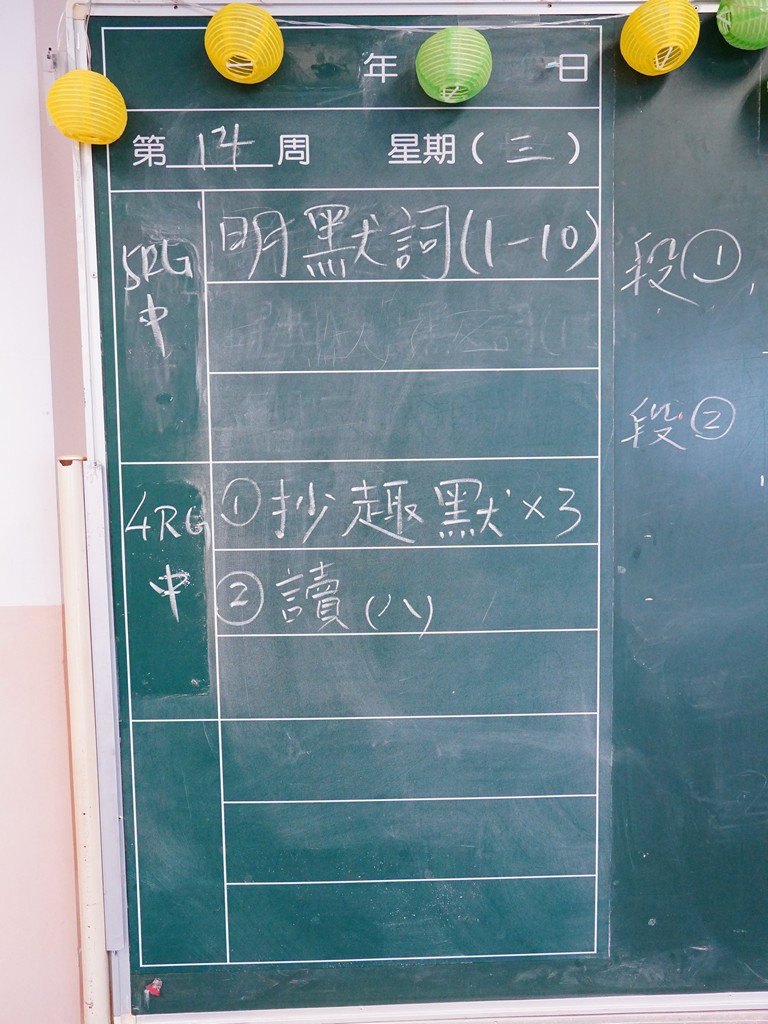 年 日
第 14 周 星期 ( 三 )
5RG 中
明默詞(1-10)
4RG 中
① 抄趣默×3
② 讀(八)
段①
段②